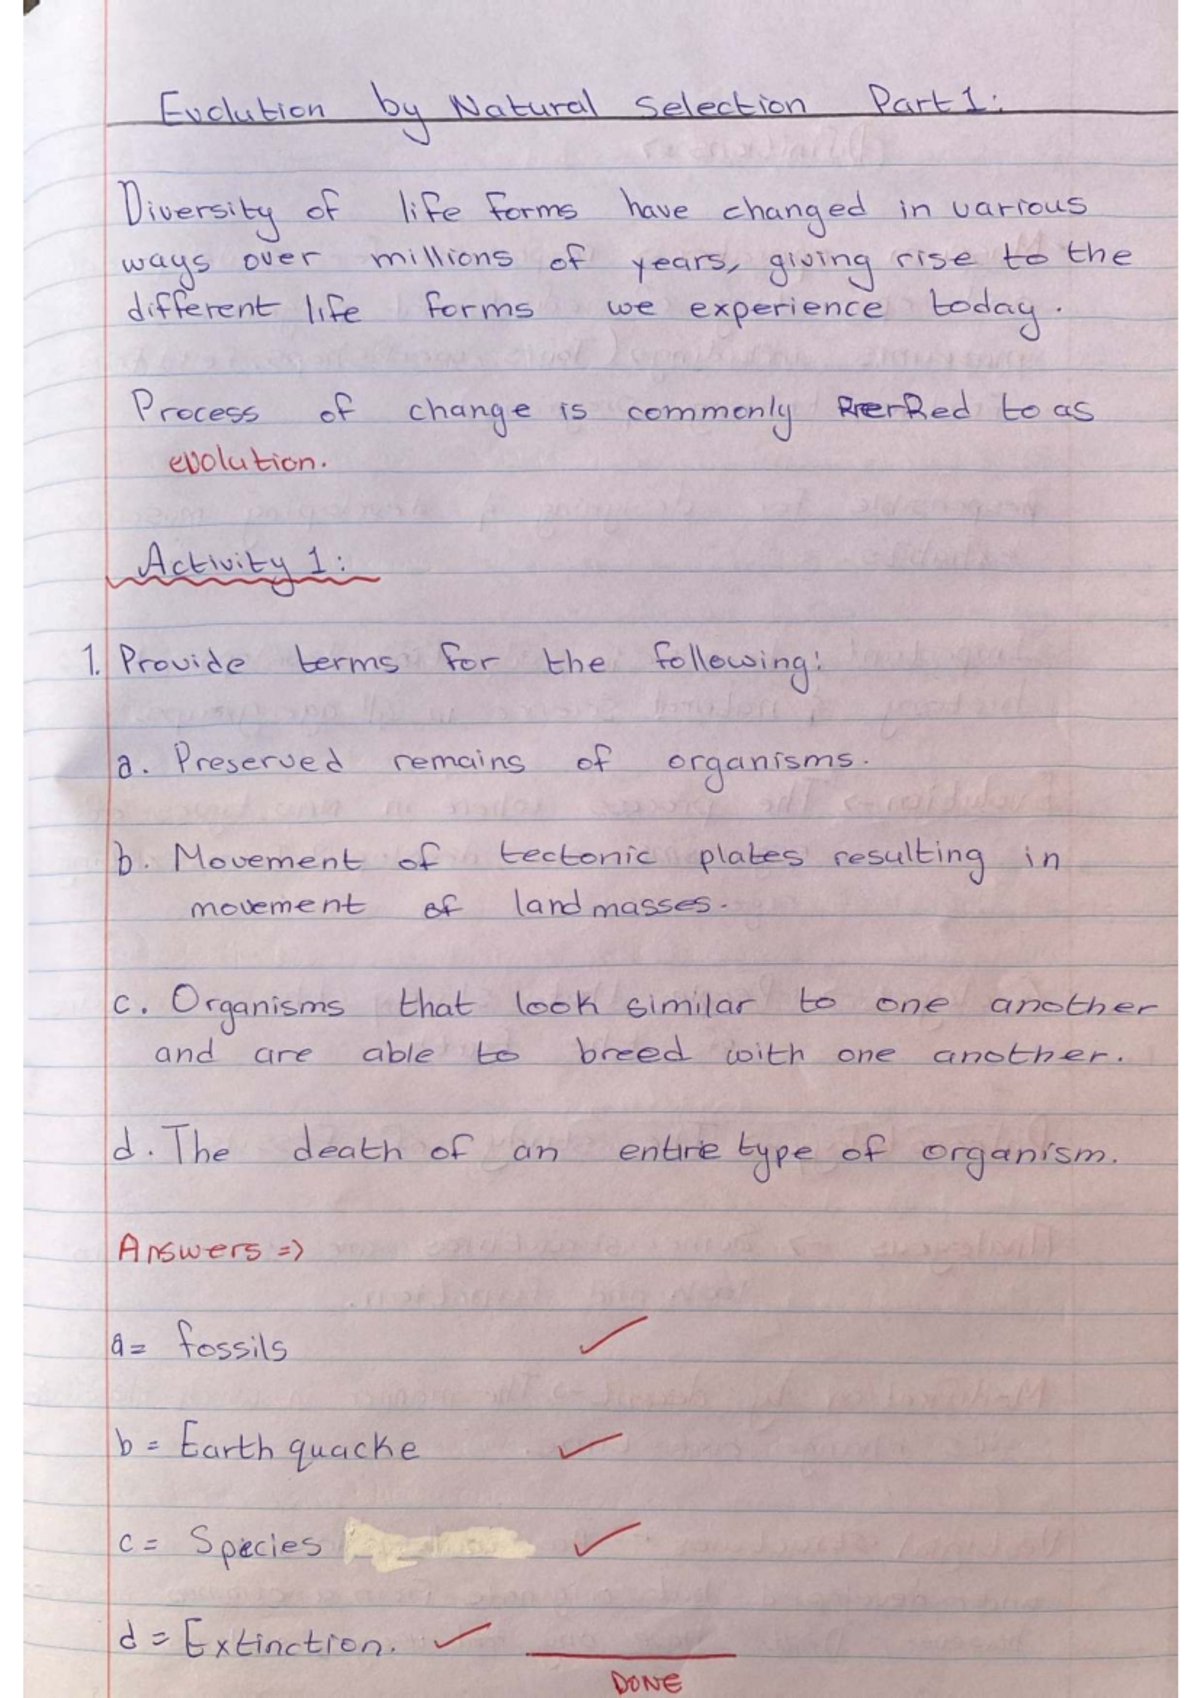 Evolution by Natural Selection Part 1:
Diversity of life forms have changed in various
ways over millions of years, giving rise to the
different life forms we experience today.
Process of change is commonly to as
evolution.
Activity 1:
1. Provide terms for the following:
a. Preserved remains of organisms.
b. Movement of tectonic plates resulting in
movement of land masses.
c. Organisms that look similar to one another
and are able to breed with one another.
d. The death of an entire type of organism.
Answers =>
a = fossils
b = Earth quacke
c = Species
d = Extinction.
DONE